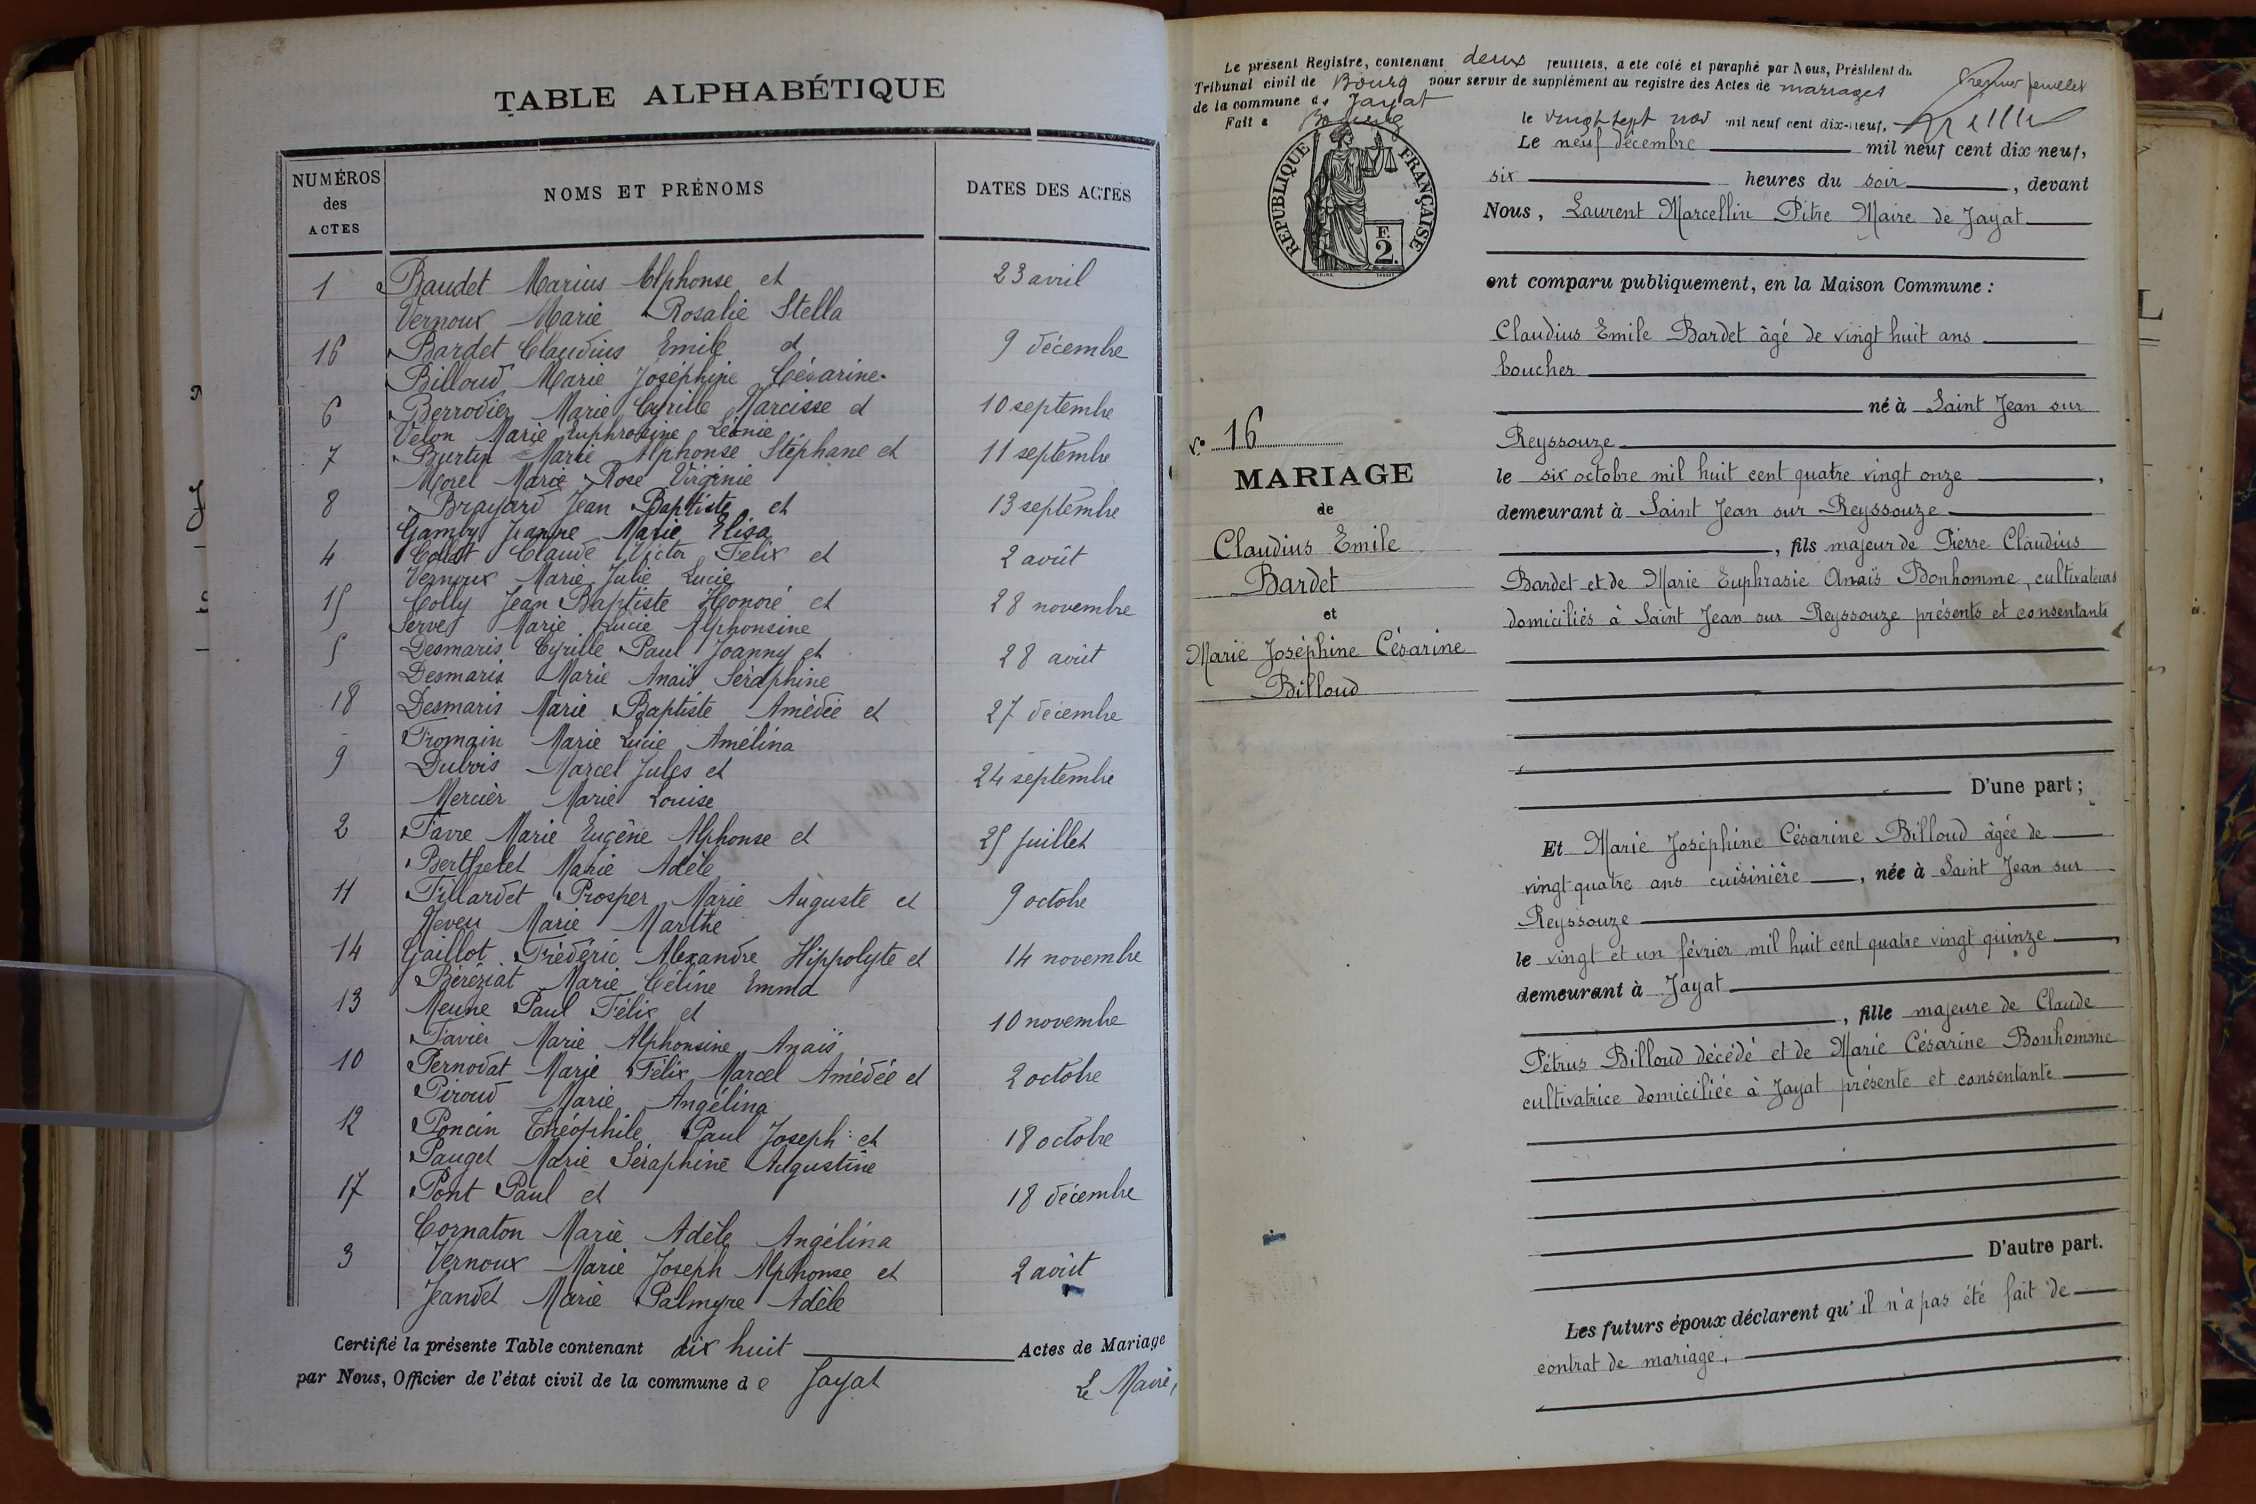 TABLE ALPHABÉTIQUE
NUMÉROS
des
ACTES
NOMS ET PRÉNOMS
DATES DES ACTES
1 Baudet Marius Alphonse et 23 avril
Vernoux Marie Rosalie Stella
16 Bardet Claudius Emile et 9 décembre
Billoud Marie Joséphine Césarine
6 Berrodier Marie Cyrille Narcisse et 10 septembre
Velon Marie Euphrosine Léonie
7 Burtin Marie Alphonse Stéphane et 11 septembre
Morel Marie Rose Virginie
8 Brayard Jean Baptiste et 13 septembre
Gamby Jeanne Marie Elisa
4 Collet Claude Victor Félix et 2 août
Vernoux Marie Julie Lucie
15 Colly Jean Baptiste Honoré et 28 novembre
Servet Marie Lucie Alphonsine
5 Desmaris Cyrille Paul Joanny et 28 août
Desmaris Marie Anaïs Séraphine
18 Desmaris Marie Baptiste Amédée et 27 décembre
Fromain Marie Lucie Amélina
9 Dubois Marcel Jules et 24 septembre
Mercier Marie Louise
2 Favre Marie Eugène Alphonse et 25 juillet
Berthelet Marie Adèle
11 Tillardet Prosper Marie Auguste et 9 octobre
Neveu Marie Marthe
14 Gaillot Frédéric Alexandre Hippolyte et 14 novembre
Béréziat Marie Céline Emma
13 Meune Paul Félix et 10 novembre
Favier Marie Alphonsine Anaïs
10 Pernodat Marie Félix Marcel Amédée et 2 octobre
Piroud Marie Angélina
12 Poncin Théophile Paul Joseph et 18 octobre
Pauget Marie Séraphine Augustine
17 Pont Paul et 18 décembre
Cornaton Marie Adèle Angélina
3 Vernoux Marie Joseph Alphonse et 2 août
Jeandet Marie Palmyre Adèle
Certifié la présente Table contenant dix huit Actes de Mariage
par Nous, Officier de l'état civil de la commune de Jayat
Le Maire,
Le présent Registre, contenant deux feuillets, a été coté et paraphé par Nous, Président du
Tribunal civil de Bourg pour servir de supplément au registre des Actes de mariages
de la commune de Jayat
Premier feuillet
Fait à Bourg le vingt sept nov mil neuf cent dix-neuf.
RÉPUBLIQUE FRANÇAISE
F.
2.
Le neuf décembre mil neuf cent dix neuf,
six heures du soir, devant
Nous, Laurent Marcellin Pitre Maire de Jayat
ont comparu publiquement, en la Maison Commune :
Claudius Emile Bardet âgé de vingt huit ans
boucher
né à Saint Jean sur
Reyssouze
le six octobre mil huit cent quatre vingt onze,
demeurant à Saint Jean sur Reyssouze
, fils majeur de Pierre Claudius
Bardet et de Marie Euphrasie Anaïs Bonhomme, cultivateurs
domiciliés à Saint Jean sur Reyssouze présents et consentants
N° 16
MARIAGE
de
Claudius Emile
Bardet
et
Marie Joséphine Césarine
Billoud
D'une part ;
Et Marie Joséphine Césarine Billoud âgée de
vingt quatre ans cuisinière, née à Saint Jean sur
Reyssouze
le vingt et un février mil huit cent quatre vingt quinze,
demeurant à Jayat
, fille majeure de Claude
Pétrus Billoud décédé et de Marie Césarine Bonhomme
cultivatrice domiciliée à Jayat présente et consentante
D'autre part.
Les futurs époux déclarent qu'il n'a pas été fait de
contrat de mariage.